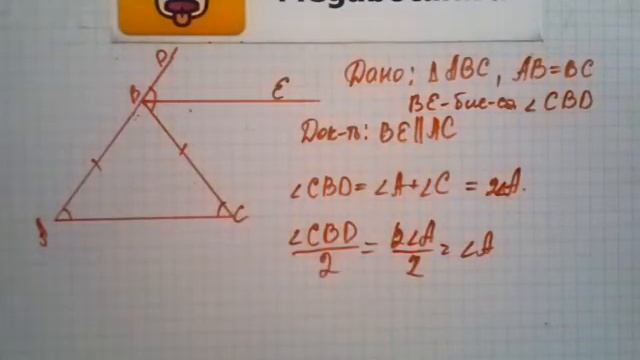 D
B
E
A
C
Дано: ΔABC, AB=BC
BE-бис-са ∠CBD
Док-ть: BE||AC
∠CBD=∠A+∠C = 2∠A.
∠CBD/2 = 2∠A/2 = ∠A